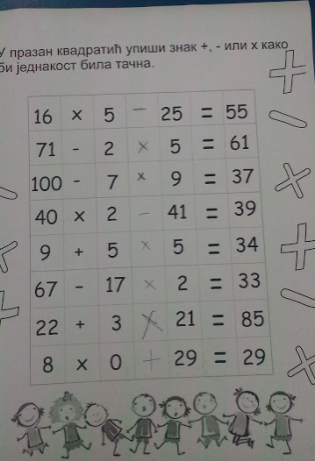 У празан квадратић упиши знак +, - или х како
би једнакост била тачна.
16 x 5 - 25 = 55
71 - 2 x 5 = 61
100 - 7 x 9 = 37
40 x 2 - 41 = 39
9 + 5 x 5 = 34
67 - 17 x 2 = 33
22 + 3 x 21 = 85
8 x 0 + 29 = 29